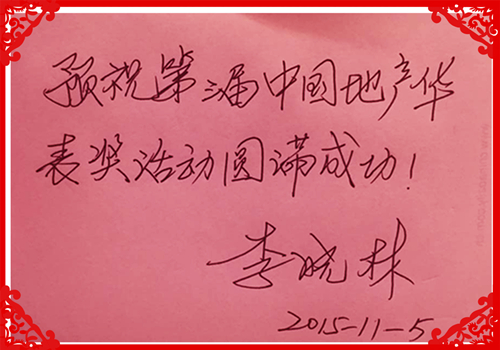 预祝第三届中国地产华
表奖活动圆满成功！
李晓林
2015-11-5